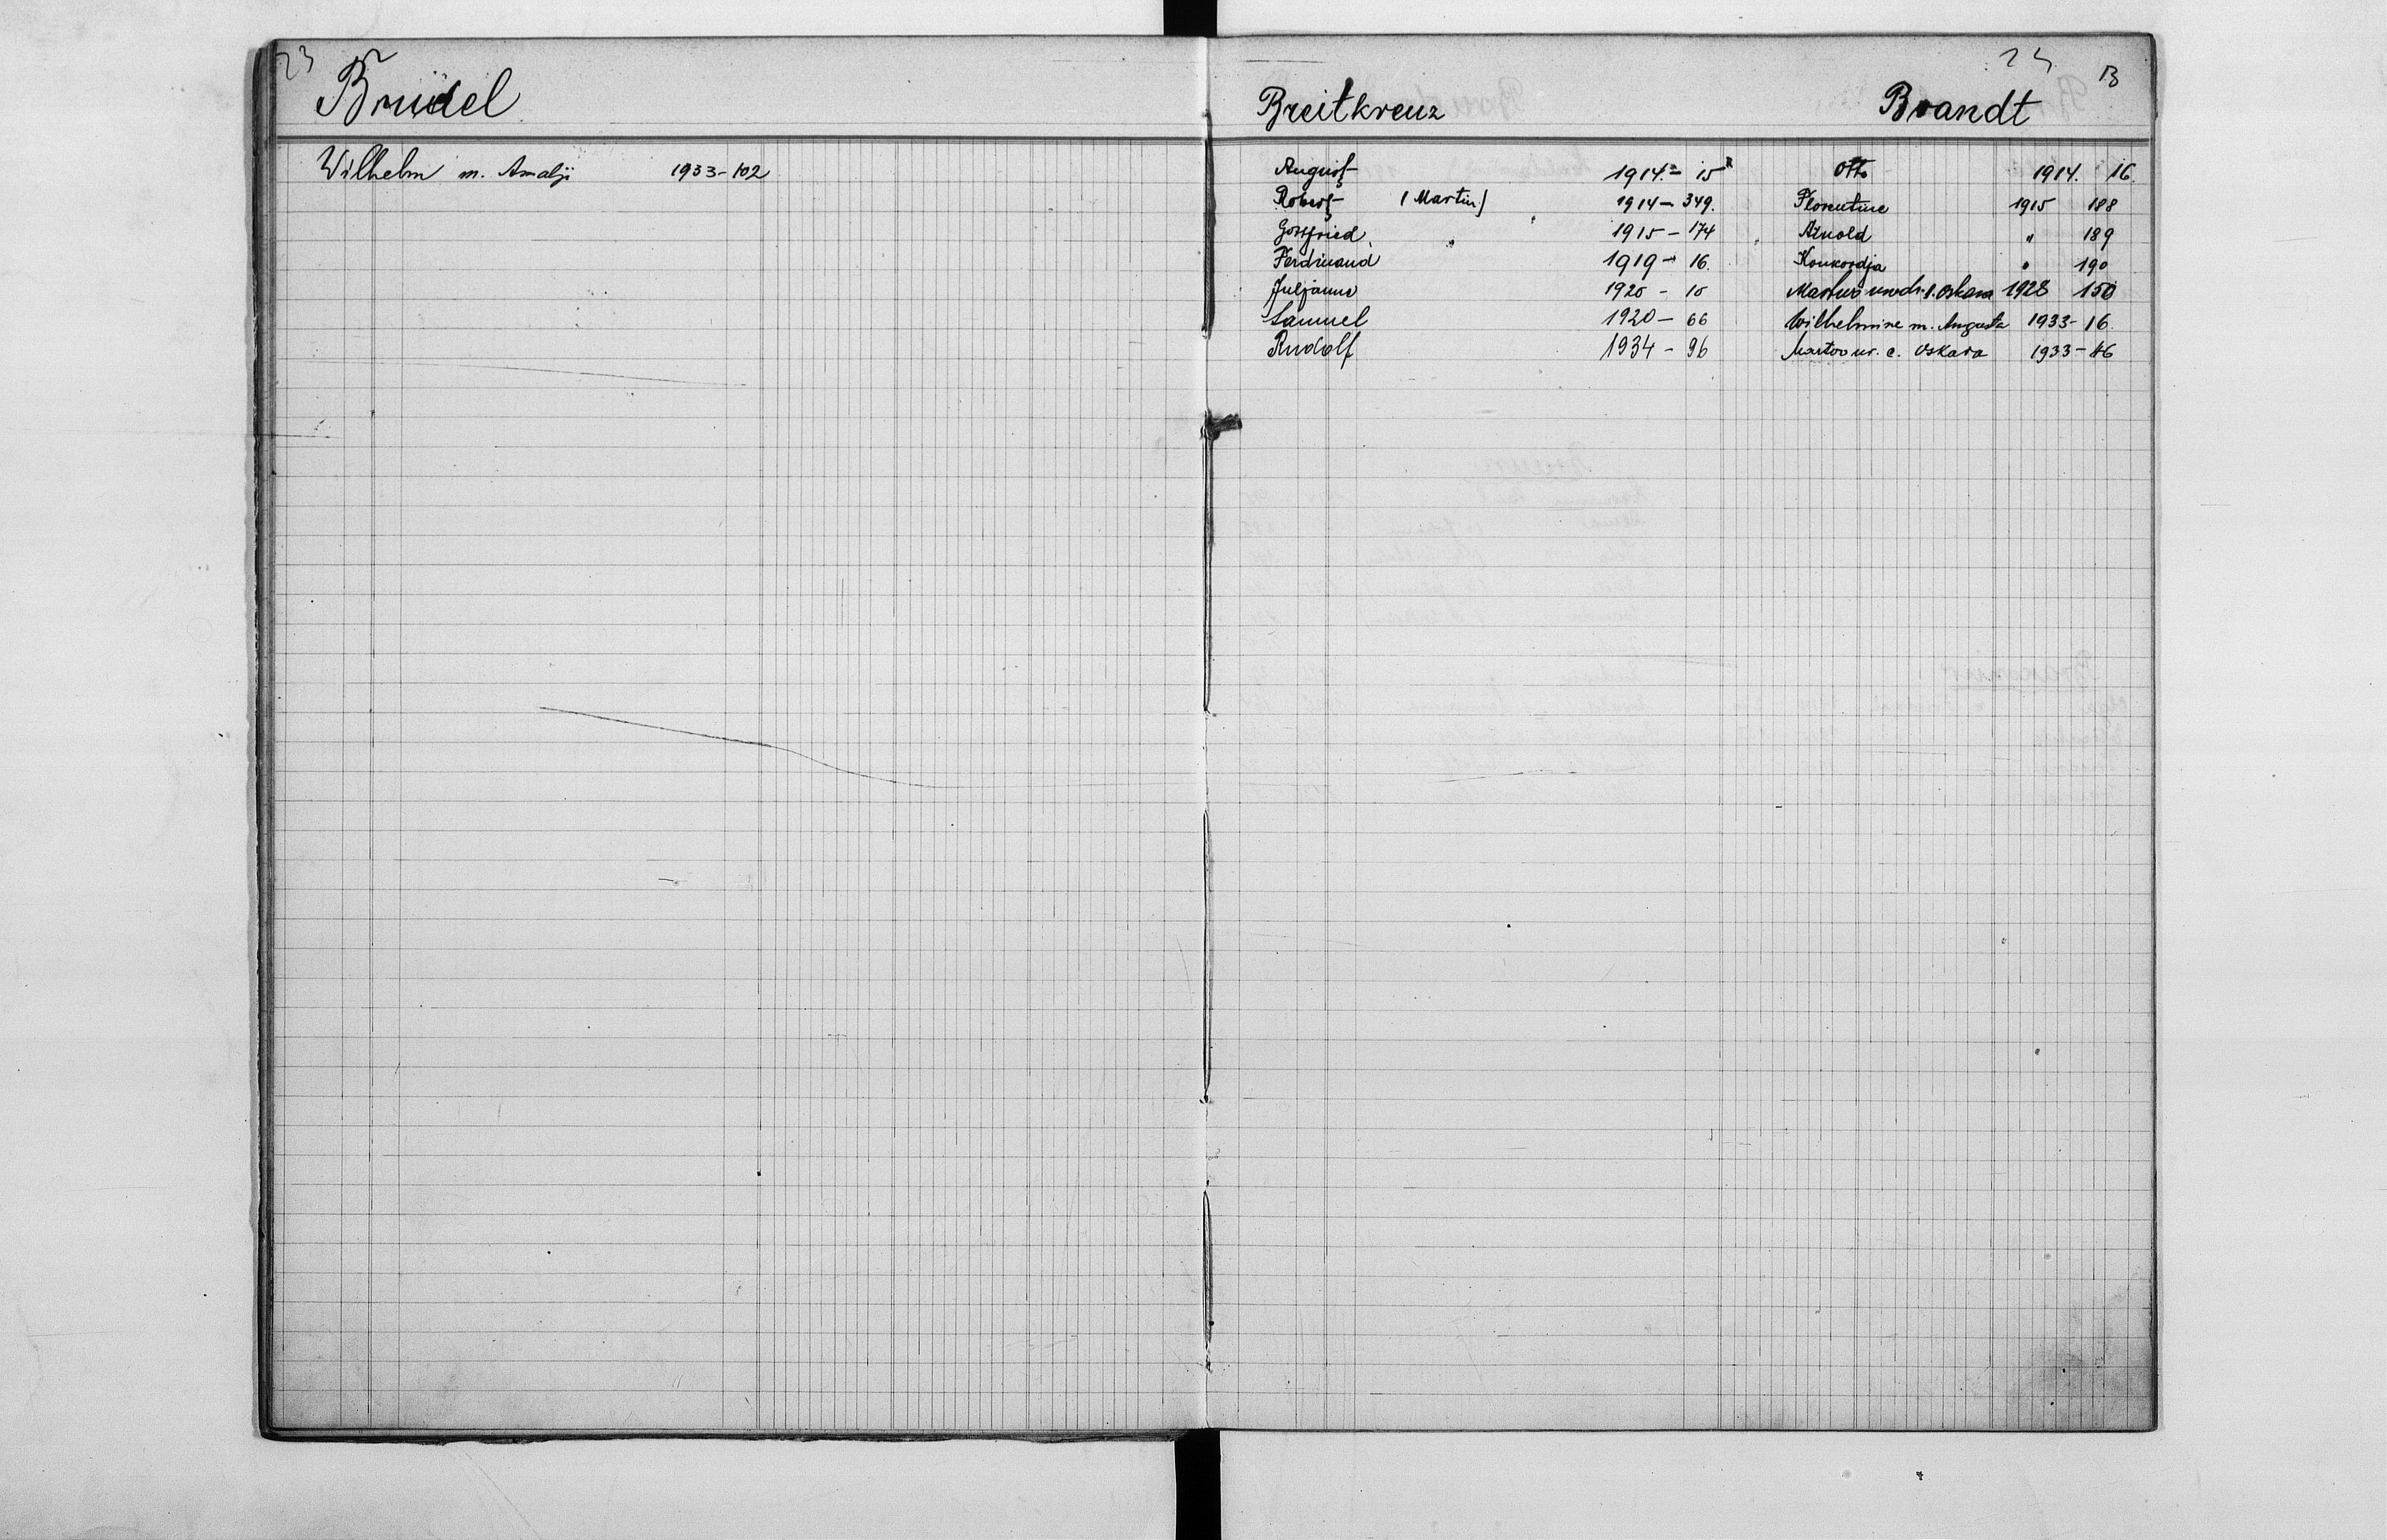 23
Brudel
Wilhelm m. Amalji 1933-102
24 B
Breitkreuz
August 1914 - 15
Robert (Martin) 1914 - 349.
Gottfried 1915 - 174
Ferdinand 1919 - 16.
Juljanne 1920 - 10
Samuel 1920 - 66
Rudolf 1934 - 96
Brandt
Otto 1914. 16.
Florentine 1915 188
Arnold " 189
Konkordja " 190
Oskara 1928 150
Wilhelmine m. Augusta 1933 - 16.
Martwo ur. c. Oskara 1933 - 46